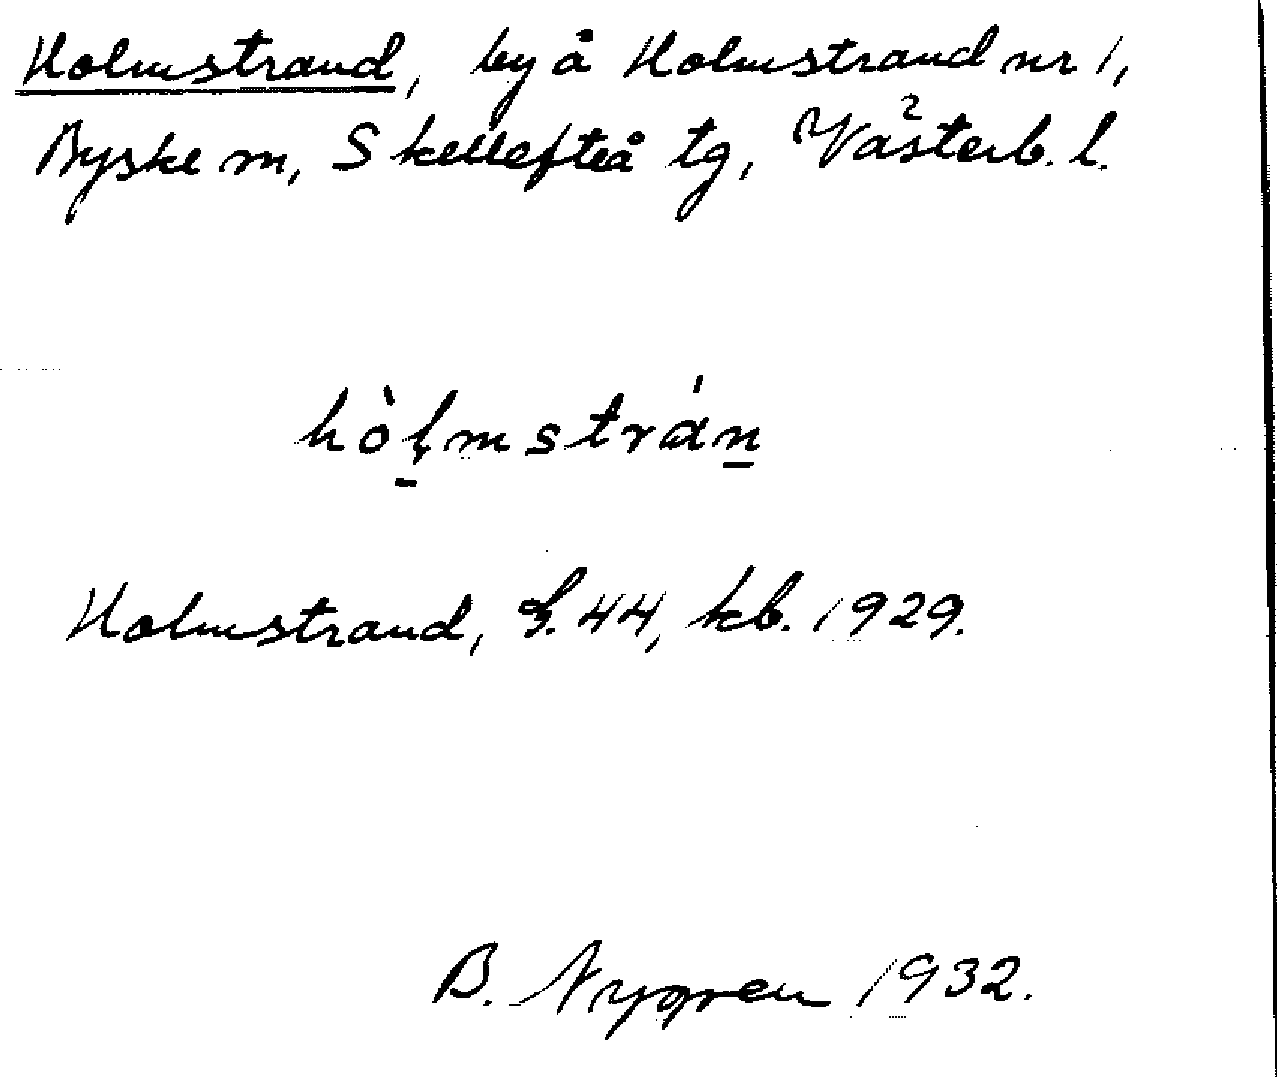 Holmstrand, by å Holmstrand nr 1,
Byske sn, Skellefteå tg, Västerb. l.
hòl̠mstrán̠
Holmstrand, f. 44, kb. 1929.
B. Nygren 1932.